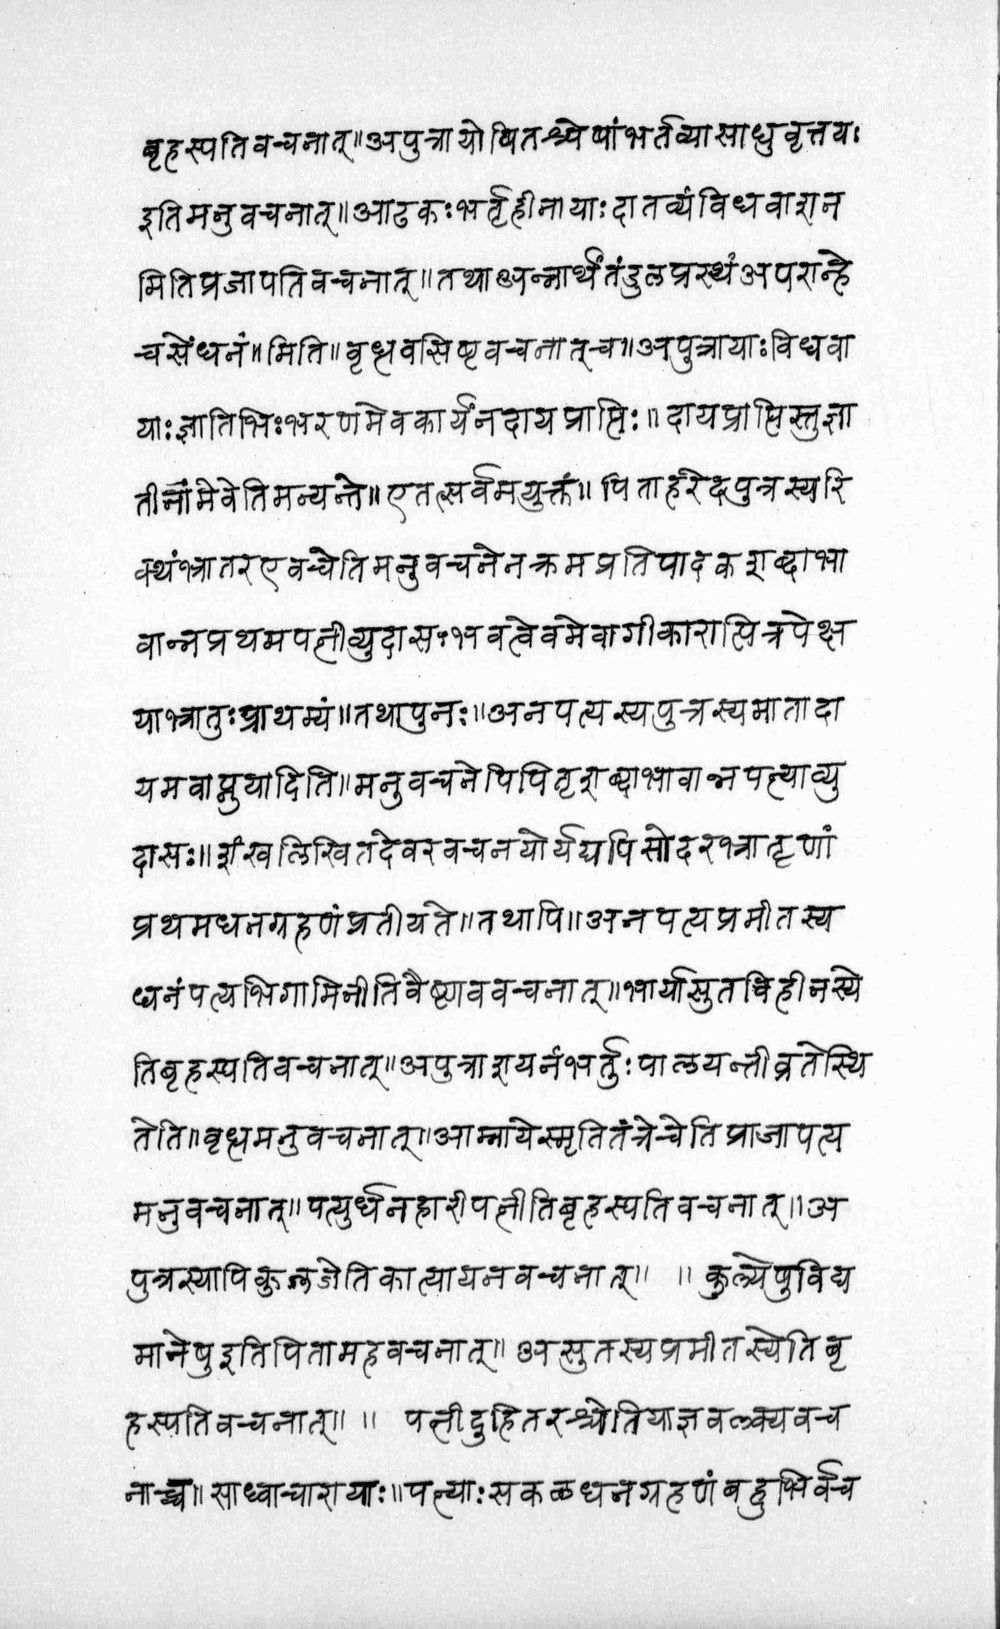 बृहस्पतिवचनात्॥अपुत्रायोषितश्चेषांभर्तव्यासाधुवृत्तयः
इतिमनुवचनात्॥आढकःभर्तृहीनायाःदातव्यंविधवाशन
मितिप्रजापतिवचनात्॥तथाअन्नार्थंतंडुलप्रस्थंअपरान्हे
चसेंधनं॥मिति॥वृध्नवसिष्ठवचनात्च॥अपुत्रायाःविधवा
याःज्ञातिभिःभरणमेवकार्यंनदायप्राप्तिः॥दायप्राप्तिस्तुज्ञा
तीनांमेवेतिमन्यन्ते॥एतत्सर्वमयुक्तं॥पिताहरेदपुत्रस्यरि
क्थंभ्रातरएवचेतिमनुवचनेनक्रमप्रतिपादकशब्दाभा
वान्नप्रथमपत्नीव्युदासःभवत्वेवमेवागीकारात्पित्रपेक्ष
याभ्रातुःप्राथम्यं॥तथापुनः॥अनपत्यस्यपुत्रस्यमातादा
यमवाप्नुयादिति॥मनुवचनेपिपितृशब्दाभावान्नपत्न्याव्यु
दासः॥शंखलिखितदेवरवचनयोर्यद्यपिसोदरभ्रातृणां
प्रथमधनग्रहणंप्रतीयते॥तथापि॥अनपत्यप्रमीतस्य
धनंपत्यभिगामिनीतिवैष्णववचनात्॥भार्यासुतविहीनस्ये
तिबृहस्पतिवचनात्॥अपुत्राशयनंभर्तुःपालयन्तीव्रतेस्थि
तेति॥वृध्नमनुवचनात्॥आम्नायेस्मृतितंत्रेचेतिप्राजापत्य
मनुवचनात्॥पत्युर्धनहारीपत्नीतिबृहस्पतिवचनात्॥अ
पुत्रस्यापिकुलजेतिकात्यायनवचनात्॥ ॥कुल्येषुविद्य
मानेषुइतिपितामहवचनात्॥असुतस्यप्रमीतस्येतिबृ
हस्पतिवचनात्॥ ॥ पत्नीदुहितरश्चेतियाज्ञवल्क्यवच
नाच्च॥साध्वाचारायाः॥पत्न्याःसकळधनग्रहणंबहुभिर्वच